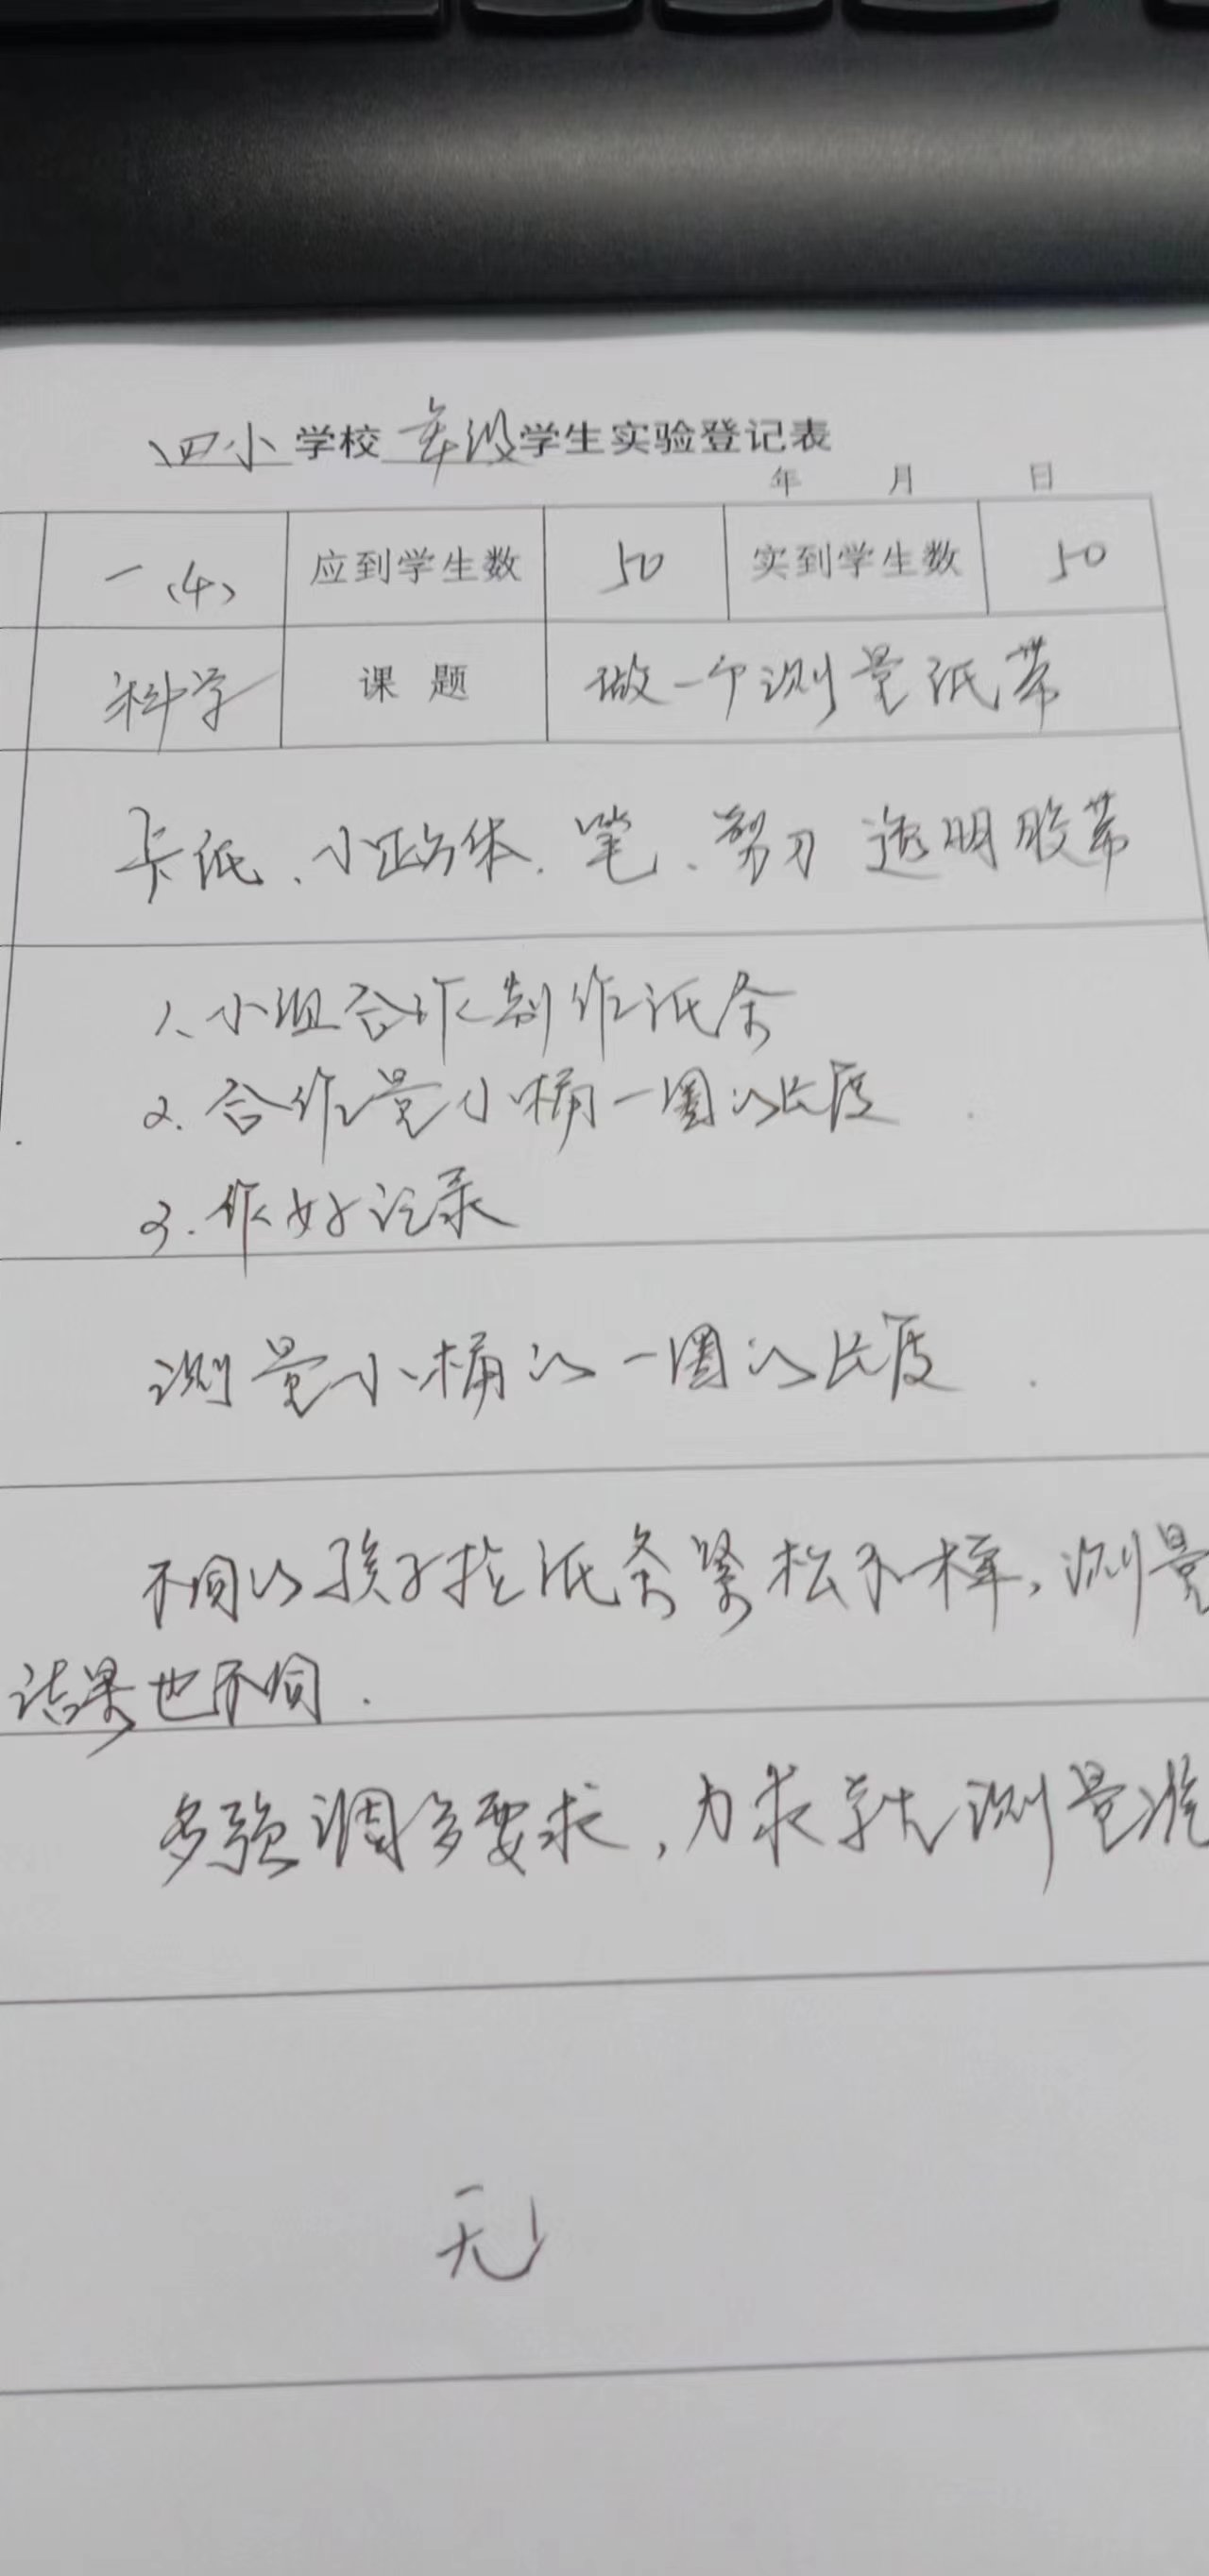 四小学校年级学生实验登记表
年 月 日
一(4) 应到学生数 50 实到学生数 50
科学 课题 做一个测量纸带
卡纸、小正方体、笔、剪刀 透明胶带
1、小组合作制作纸条
2. 合作量小桶一圈的长度
3. 作好记录
测量小桶的一圈的长度.
不同的孩子拉纸条紧松不一样,测量
结果也不同.
多强调多要求,力求学生测量准
无